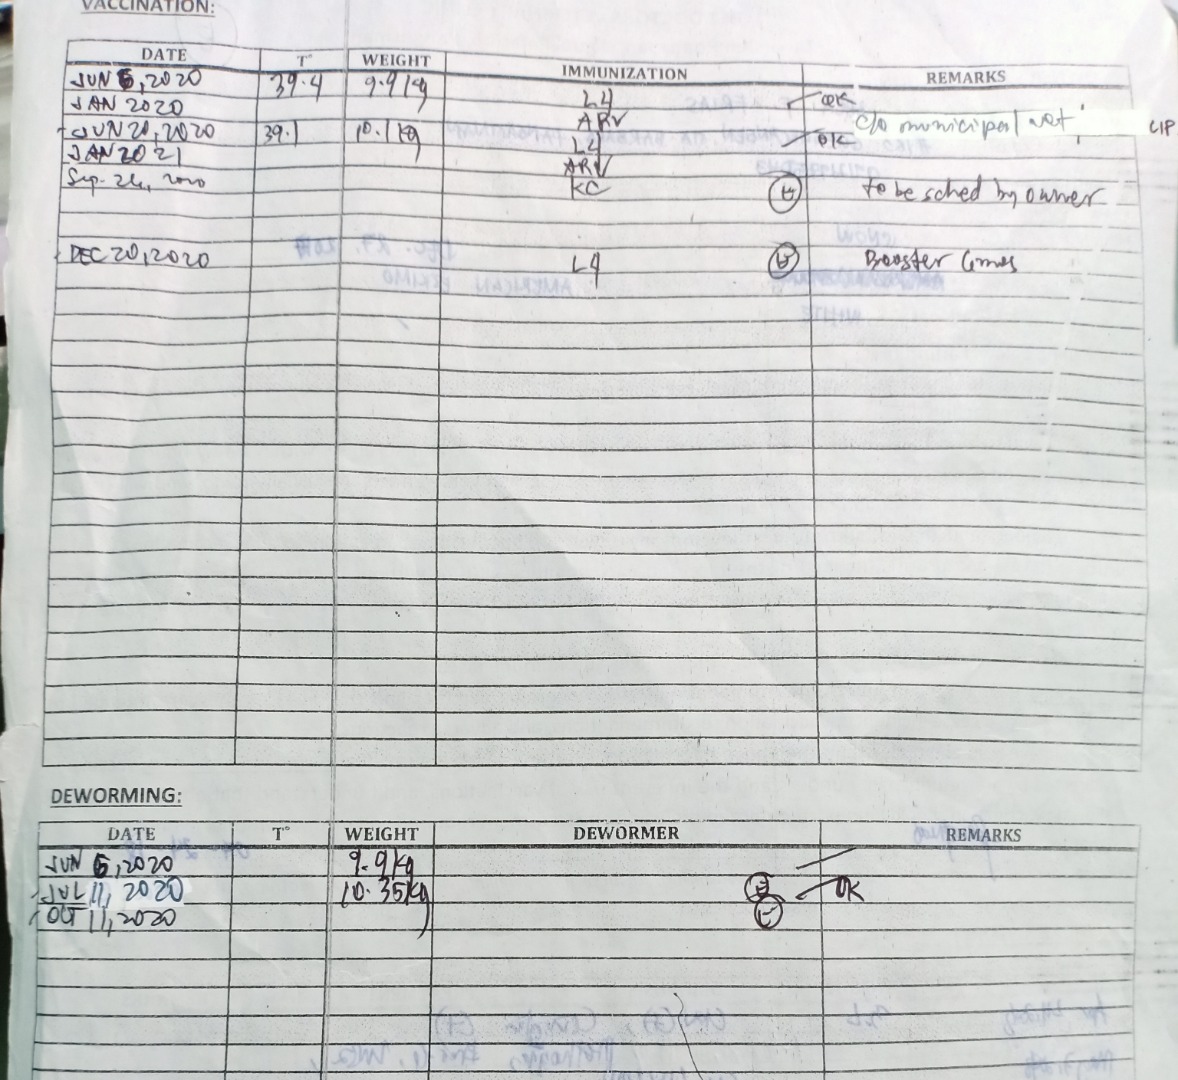 VACCINATION:
DATE T° WEIGHT IMMUNIZATION REMARKS
JUN 6, 2020 39.4 9.9 kg L4 OK
JAN 2020 ARV c/o municipal vet
JUN 20, 2020 39.1 10.1 kg L4 OK
JAN 2021 ARV
Sep. 26, 2020 KC to be sched by owner
DEC 20, 2020 L4 Booster 6mos
DEWORMING:
DATE T° WEIGHT DEWORMER REMARKS
JUN 6, 2020 9.9 kg
JUL 11, 2020 10.35 kg OK
OCT 11, 2020